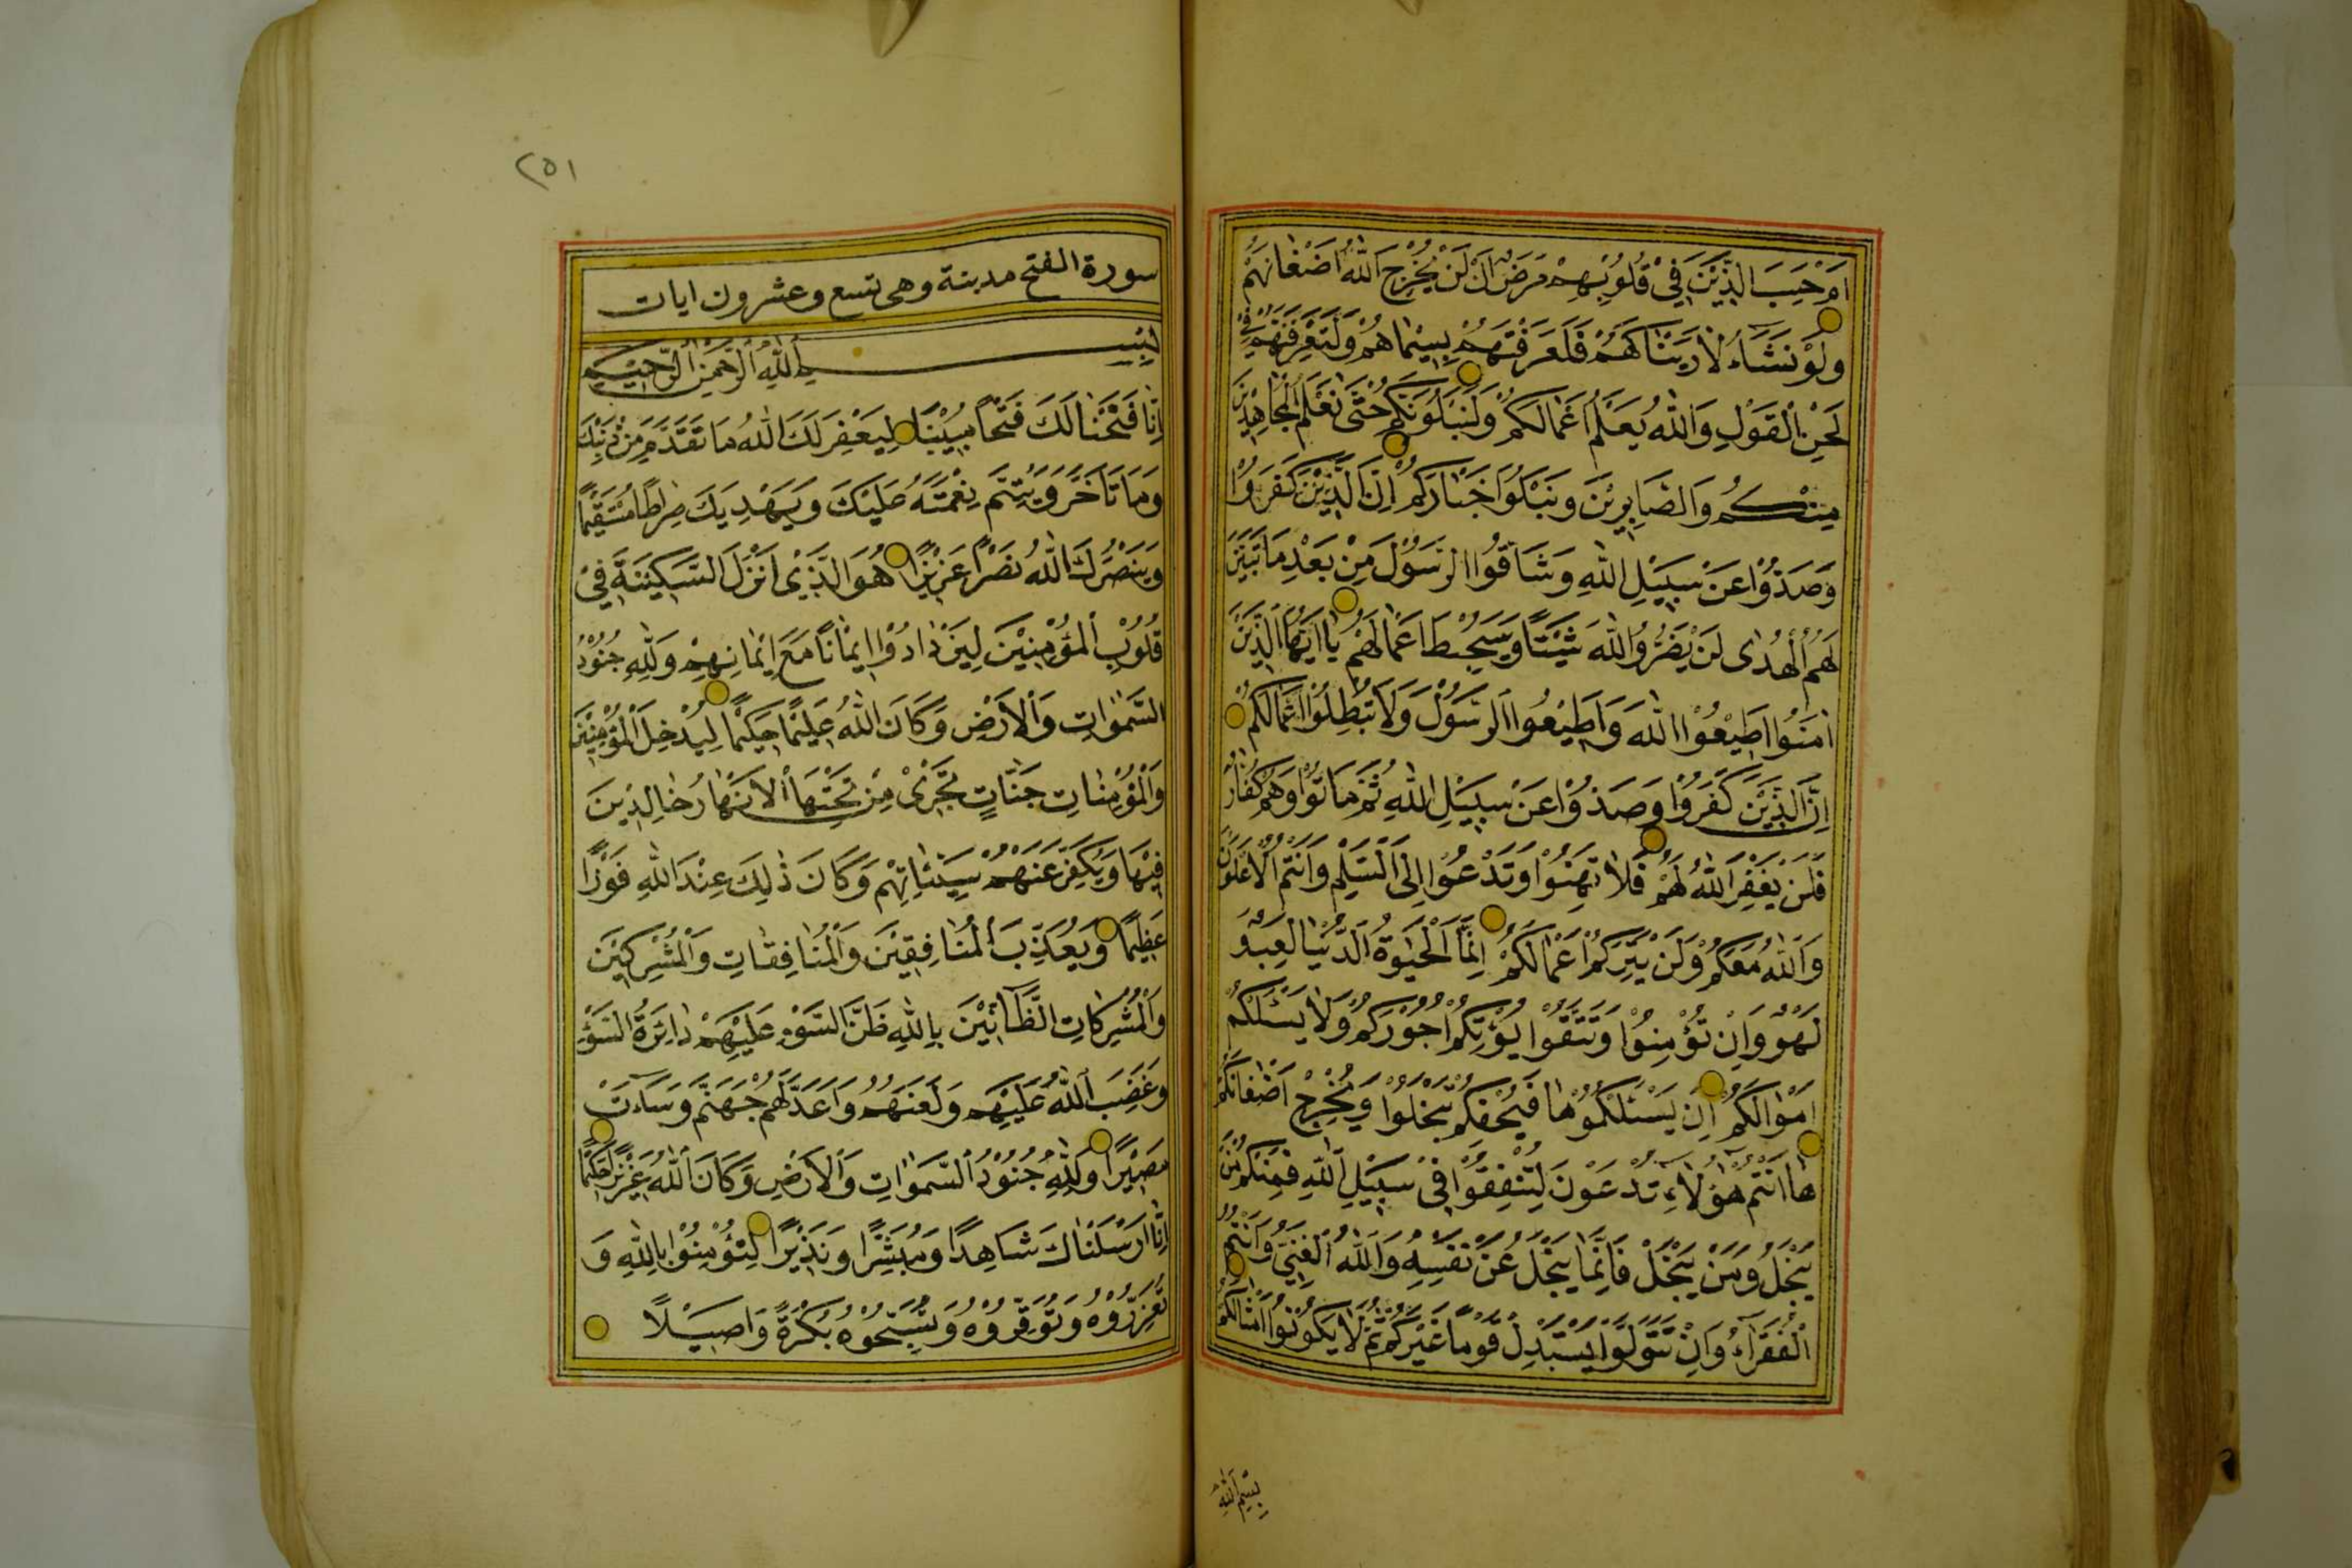 اَمْ حَسِبَ الَّذِيْنَ فِيْ قُلُوْبِهِمْ مَرَضٌ اَنْ لَنْ يُخْرِجَ اللّٰهُ اَضْغَانَهُمْ
وَلَوْ نَشَاۤءُ لَاَرَيْنَاكَهُمْ فَلَعَرَفْتَهُمْ بِسِيْمَاهُمْ وَلَتَعْرِفَنَّهُمْ فِيْ
لَحْنِ الْقَوْلِ وَاللّٰهُ يَعْلَمُ اَعْمَالَكُمْ وَلَنَبْلُوَنَّكُمْ حَتّٰى نَعْلَمَ الْمُجَاهِدِيْنَ
مِنْكُمْ وَالصَّابِرِيْنَ وَنَبْلُوَا اَخْبَارَكُمْ اِنَّ الَّذِيْنَ كَفَرُوْا
وَصَدُّوْا عَنْ سَبِيْلِ اللّٰهِ وَشَاقُّوا الرَّسُوْلَ مِنْ بَعْدِ مَا تَبَيَّنَ
لَهُمُ الْهُدٰى لَنْ يَضُرُّوا اللّٰهَ شَيْئًا وَسَيُحْبِطُ اَعْمَالَهُمْ يَا اَيُّهَا الَّذِيْنَ
اٰمَنُوا اَطِيْعُوا اللّٰهَ وَاَطِيْعُوا الرَّسُوْلَ وَلَا تُبْطِلُوْا اَعْمَالَكُمْ
اِنَّ الَّذِيْنَ كَفَرُوْا وَصَدُّوْا عَنْ سَبِيْلِ اللّٰهِ ثُمَّ مَاتُوْا وَهُمْ كُفَّارٌ
فَلَنْ يَغْفِرَ اللّٰهُ لَهُمْ فَلَا تَهِنُوْا وَتَدْعُوْا اِلَى السَّلْمِ وَاَنْتُمُ الْاَعْلَوْنَ
وَاللّٰهُ مَعَكُمْ وَلَنْ يَتِرَكُمْ اَعْمَالَكُمْ اِنَّمَا الْحَيٰوةُ الدُّنْيَا لَعِبٌ وَ
لَهْوٌ وَاِنْ تُؤْمِنُوْا وَتَتَّقُوْا يُؤْتِكُمْ اُجُوْرَكُمْ وَلَا يَسْئَلْكُمْ
اَمْوَالَكُمْ اِنْ يَسْئَلْكُمُوْهَا فَيُحْفِكُمْ تَبْخَلُوْا وَيُخْرِجْ اَضْغَانَكُمْ
هَا اَنْتُمْ هٰؤُلَاۤءِ تُدْعَوْنَ لِتُنْفِقُوْا فِيْ سَبِيْلِ اللّٰهِ فَمِنْكُمْ مَنْ
يَبْخَلُ وَمَنْ يَبْخَلْ فَاِنَّمَا يَبْخَلُ عَنْ نَفْسِهِ وَاللّٰهُ الْغَنِيُّ وَاَنْتُمُ
الْفُقَرَاۤءُ وَاِنْ تَتَوَلَّوْا يَسْتَبْدِلْ قَوْمًا غَيْرَكُمْ ثُمَّ لَا يَكُوْنُوْا اَمْثَالَكُمْ
بِسْمِ اللّٰهِ
٢٥١
سورة الفتح مدينة وهى تسع وعشرون ايات
بِسْمِ اللّٰهِ الرَّحْمٰنِ الرَّحِيْمِ
اِنَّا فَتَحْنَا لَكَ فَتْحًا مُبِيْنًا لِيَغْفِرَ لَكَ اللّٰهُ مَا تَقَدَّمَ مِنْ ذَنْبِكَ
وَمَا تَاَخَّرَ وَيُتِمَّ نِعْمَتَهُ عَلَيْكَ وَيَهْدِيَكَ صِرَاطًا مُسْتَقِيْمًا
وَيَنْصُرَكَ اللّٰهُ نَصْرًا عَزِيْزًا هُوَ الَّذِيْ اَنْزَلَ السَّكِيْنَةَ فِيْ
قُلُوْبِ الْمُؤْمِنِيْنَ لِيَزْدَادُوْا اِيْمَانًا مَعَ اِيْمَانِهِمْ وَلِلّٰهِ جُنُوْدُ
السَّمٰوَاتِ وَالْاَرْضِ وَكَانَ اللّٰهُ عَلِيْمًا حَكِيْمًا لِيُدْخِلَ الْمُؤْمِنِيْنَ
وَالْمُؤْمِنَاتِ جَنَّاتٍ تَجْرِيْ مِنْ تَحْتِهَا الْاَنْهَارُ خَالِدِيْنَ
فِيْهَا وَيُكَفِّرَ عَنْهُمْ سَيِّئَاتِهِمْ وَكَانَ ذٰلِكَ عِنْدَ اللّٰهِ فَوْزًا
عَظِيْمًا وَيُعَذِّبَ الْمُنَافِقِيْنَ وَالْمُنَافِقَاتِ وَالْمُشْرِكِيْنَ
وَالْمُشْرِكَاتِ الظَّاۤنِّيْنَ بِاللّٰهِ ظَنَّ السَّوْءِ عَلَيْهِمْ دَائِرَةُ السَّوْءِ
وَغَضِبَ اللّٰهُ عَلَيْهِمْ وَلَعَنَهُمْ وَاَعَدَّ لَهُمْ جَهَنَّمَ وَسَاۤءَتْ
مَصِيْرًا وَلِلّٰهِ جُنُوْدُ السَّمٰوَاتِ وَالْاَرْضِ وَكَانَ اللّٰهُ عَزِيْزًا حَكِيْمًا
اِنَّا اَرْسَلْنَاكَ شَاهِدًا وَمُبَشِّرًا وَنَذِيْرًا لِتُؤْمِنُوْا بِاللّٰهِ وَ
تُعَزِّرُوْهُ وَتُوَقِّرُوْهُ وَتُسَبِّحُوْهُ بُكْرَةً وَاَصِيْلًا